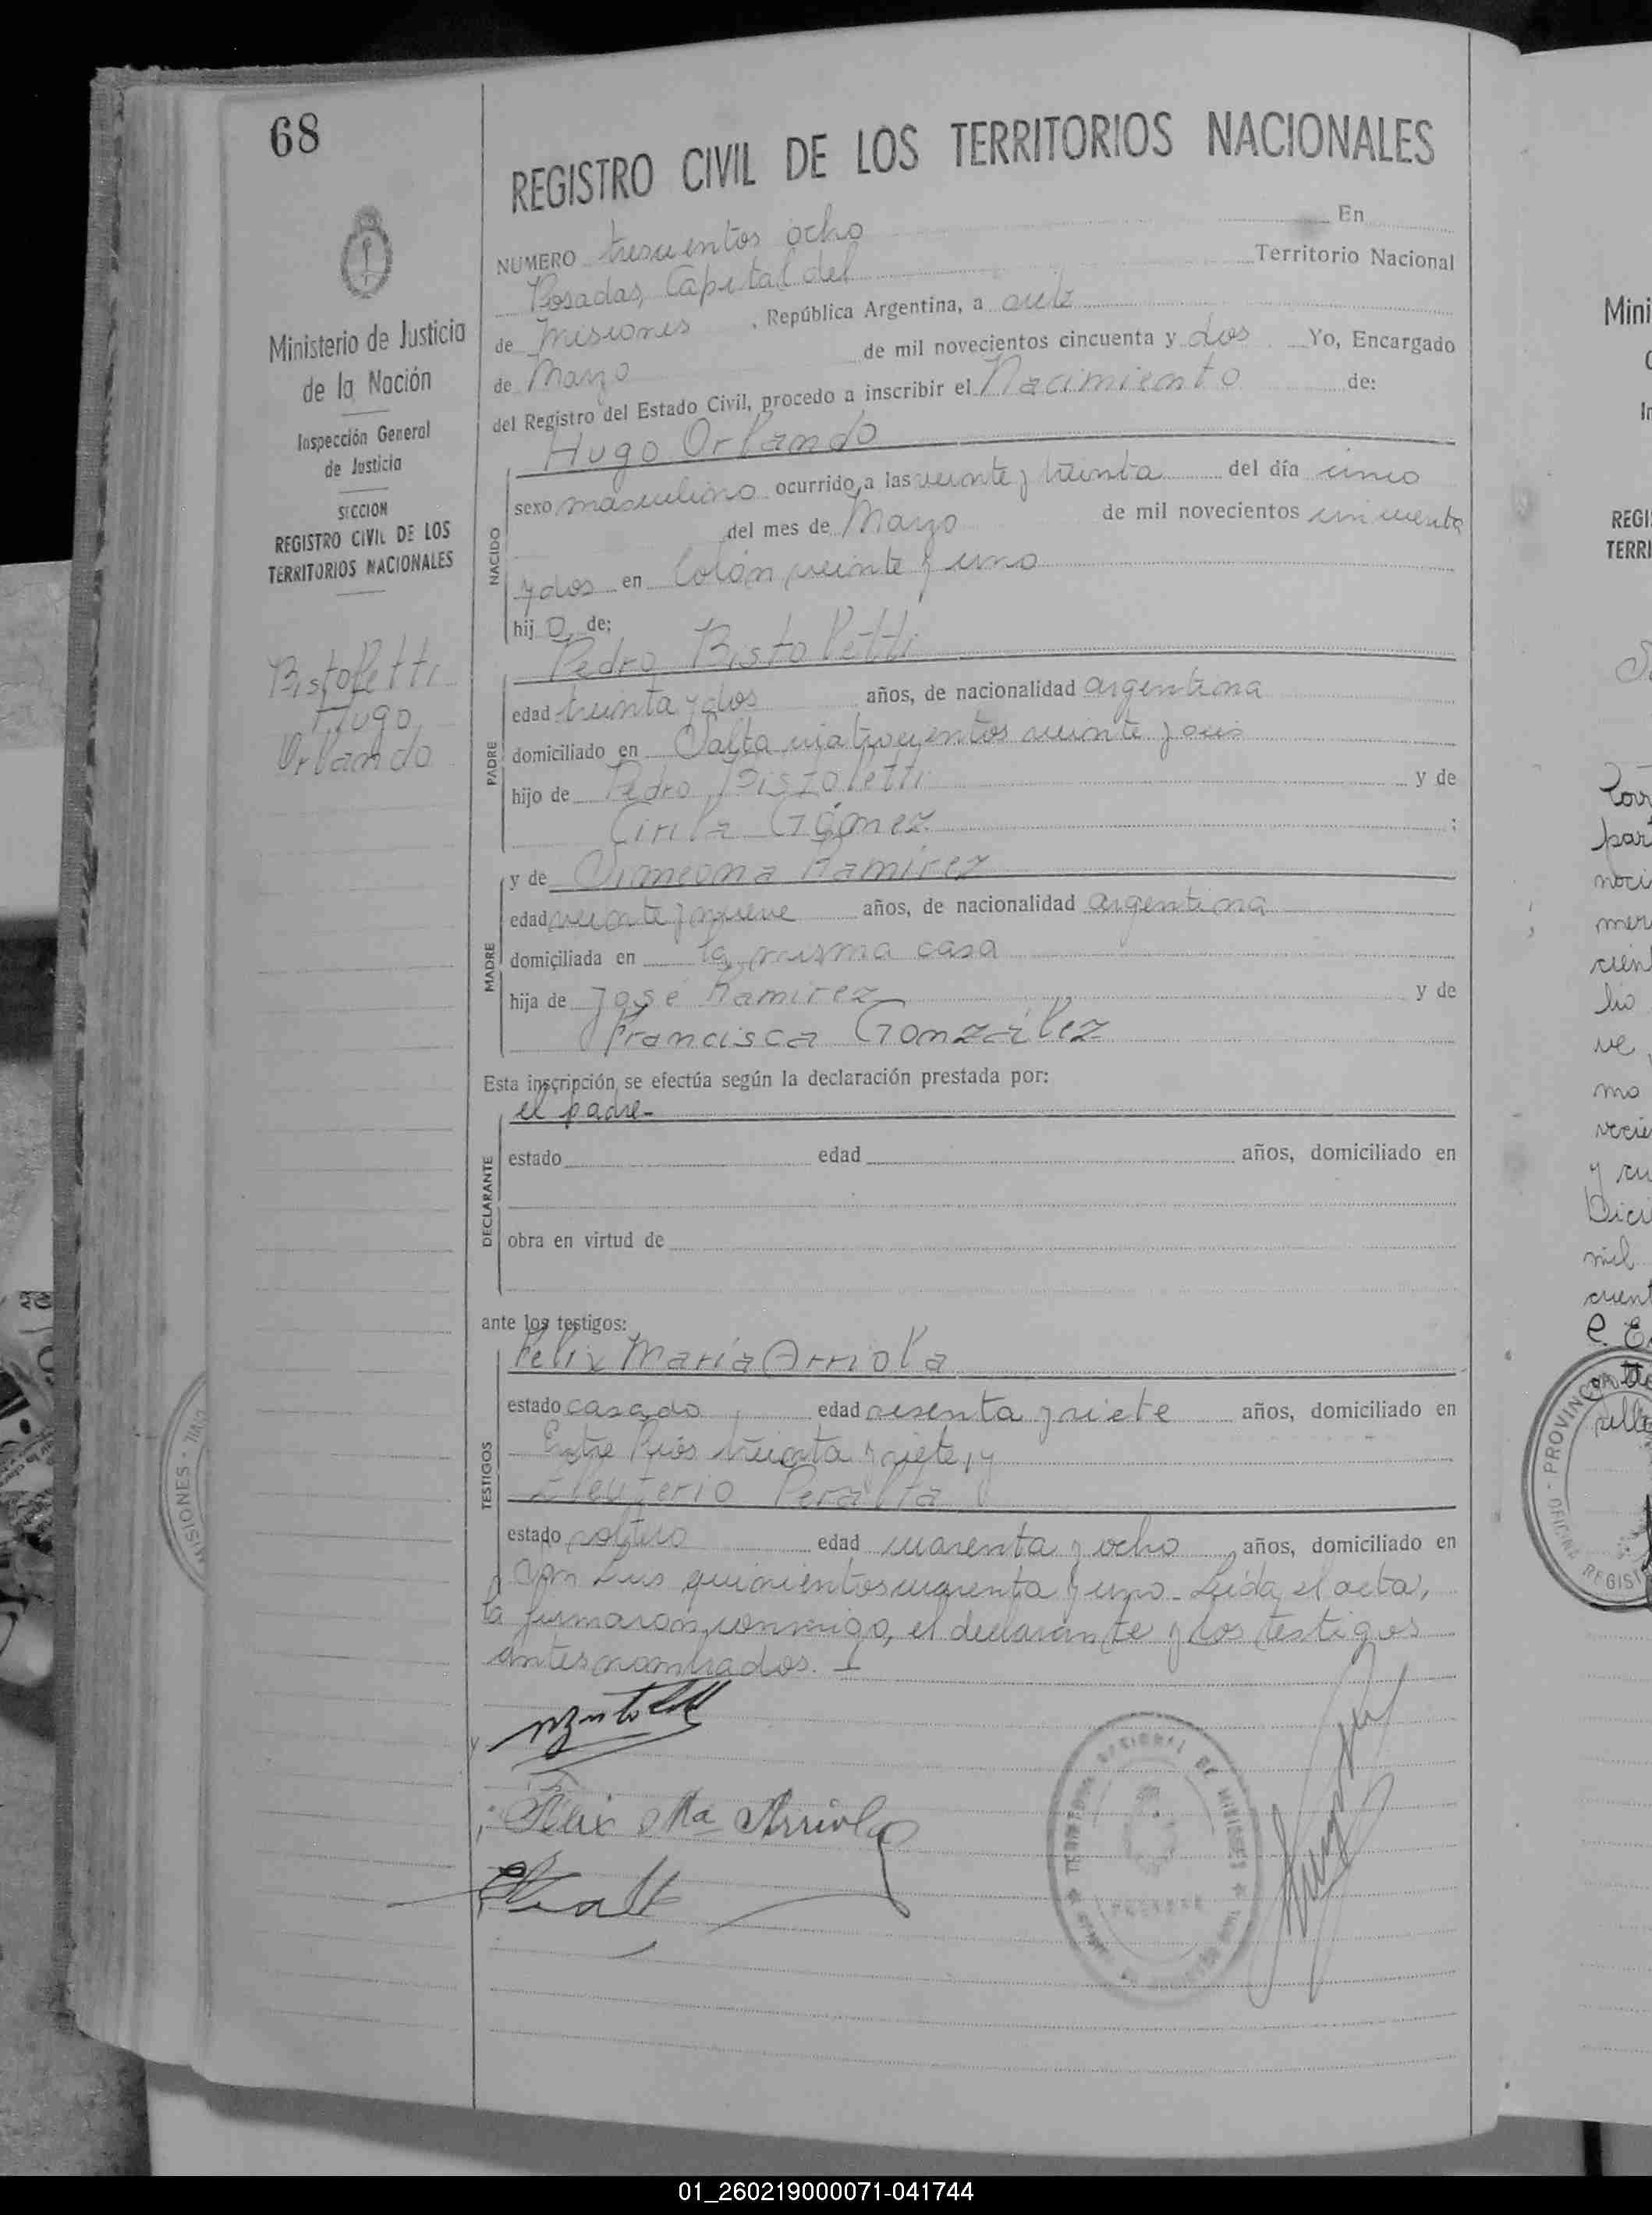 68
REGISTRO CIVIL DE LOS TERRITORIOS NACIONALES
Ministerio de Justicia
de la Nación
Inspección General
de Justicia
SECCION
REGISTRO CIVIL DE LOS
TERRITORIOS NACIONALES
Bistoletti
Hugo
Orlando
NUMERO trescientos ocho En
Posadas, Capital del Territorio Nacional
de Misiones, República Argentina, a
de Marzo de mil novecientos cincuenta y dos Yo, Encargado
del Registro del Estado Civil, procedo a inscribir el Nacimiento de:
Hugo Orlando
NACIDO
sexo masculino ocurrido a las veinte y treinta del día cinco
del mes de Marzo de mil novecientos cincuenta
y dos en Colón veinte y uno
hijo de:
Pedro Bistoletti
PADRE
edad treinta y dos años, de nacionalidad argentina
domiciliado en Salta cuatrocientos veinte y seis
hijo de Pedro Bistoletti y de
Cirila Gómez ;
MADRE
y de Simeona Ramirez
edad veinte y nueve años, de nacionalidad argentina
domiciliada en la misma casa
hija de José Ramirez y de
Francisca González
Esta inscripción se efectúa según la declaración prestada por:
el padre-
DECLARANTE
estado edad años, domiciliado en
obra en virtud de
ante los testigos:
Felix Maria Arriola
TESTIGOS
estado casado edad sesenta y siete años, domiciliado en
Entre Rios treinta y siete, y
Eleuterio Peralta
estado soltero edad cuarenta y ocho años, domiciliado en
San Luis quinientos cuarenta y uno. Leida el acta,
la firmaron conmigo, el declarante y los testigos
antes nombrados.
Felix Ma Arriola
TERRITORIO NACIONAL DE MISIONES
POSADAS
MISIONES
PROVINCIA
01_260219000071-041744